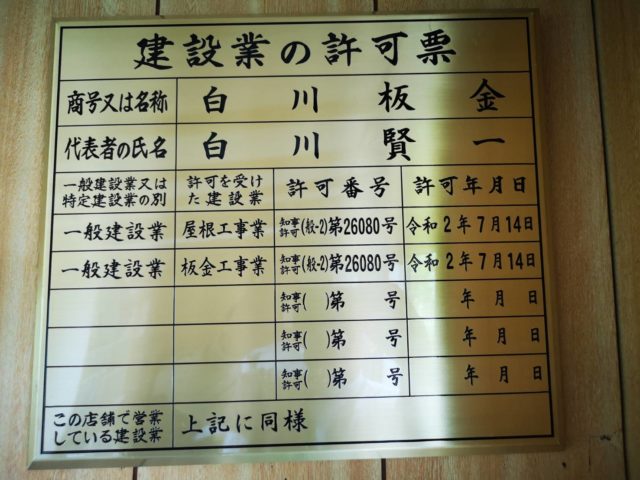 建設業の許可票
商号又は名称 白川板金
代表者の氏名 白川賢一
一般建設業又は
特定建設業の別
許可を受け
た建設業
許可番号
許可年月日
一般建設業 屋根工事業 知事許可(般-2)第26080号 令和2年7月14日
一般建設業 板金工事業 知事許可(般-2)第26080号 令和2年7月14日
知事許可( )第 号 年 月 日
知事許可( )第 号 年 月 日
知事許可( )第 号 年 月 日
この店舗で営業
している建設業
上記に同様